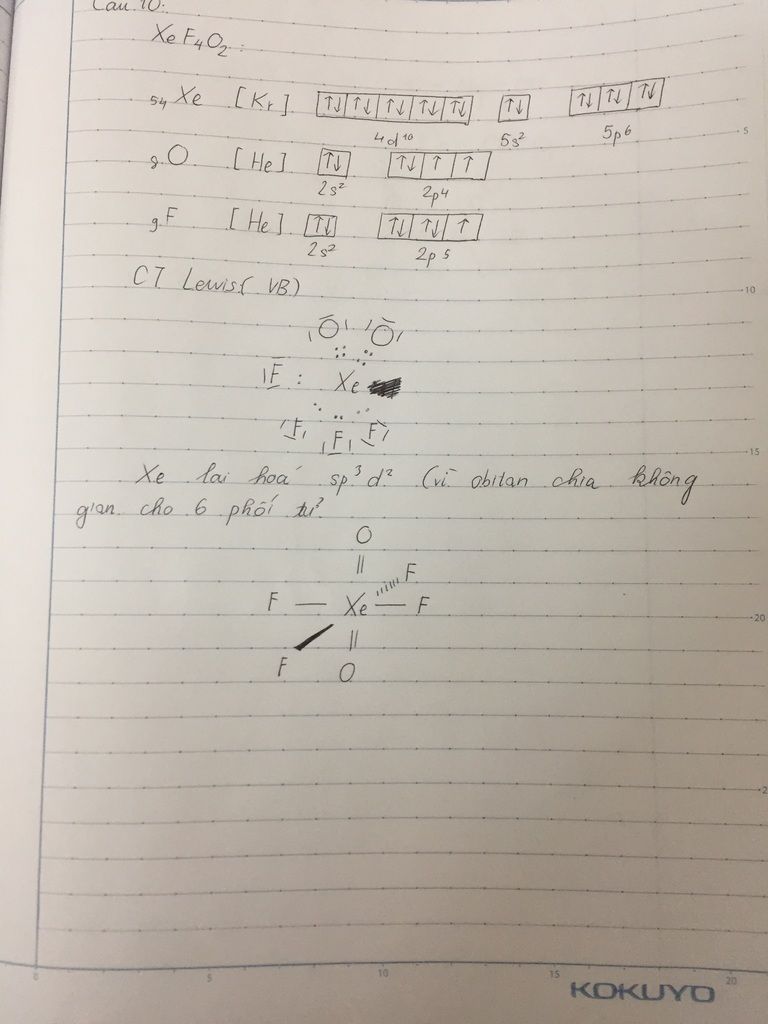 Câu 10:
XeF₄O₂:
₅₄Xe [Kr] ↑↓ ↑↓ ↑↓ ↑↓ ↑↓ ↑↓ ↑↓ ↑↓ ↑↓
4d¹⁰ 5s² 5p⁶
₈O [He] ↑↓ ↑↓ ↑ ↑
2s² 2p⁴
₉F [He] ↑↓ ↑↓ ↑↓ ↑
2s² 2p⁵
CT Lewis( VB)
O O
F : Xe
F F F
Xe lai hoá sp³d² (vì obitan chia không
gian cho 6 phối tử
O
|| F
F — Xe — F
||
F O
5
10
15
20
0 5 10 15 20
KOKUYO